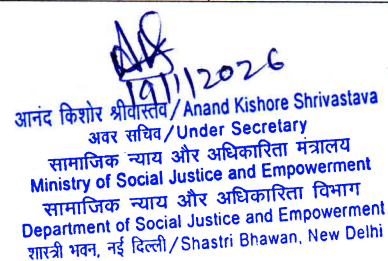 19/1/2026
आनंद किशोर श्रीवास्तव/Anand Kishore Shrivastava
अवर सचिव/Under Secretary
सामाजिक न्याय और अधिकारिता मंत्रालय
Ministry of Social Justice and Empowerment
सामाजिक न्याय और अधिकारिता विभाग
Department of Social Justice and Empowerment
शास्त्री भवन, नई दिल्ली/Shastri Bhawan, New Delhi